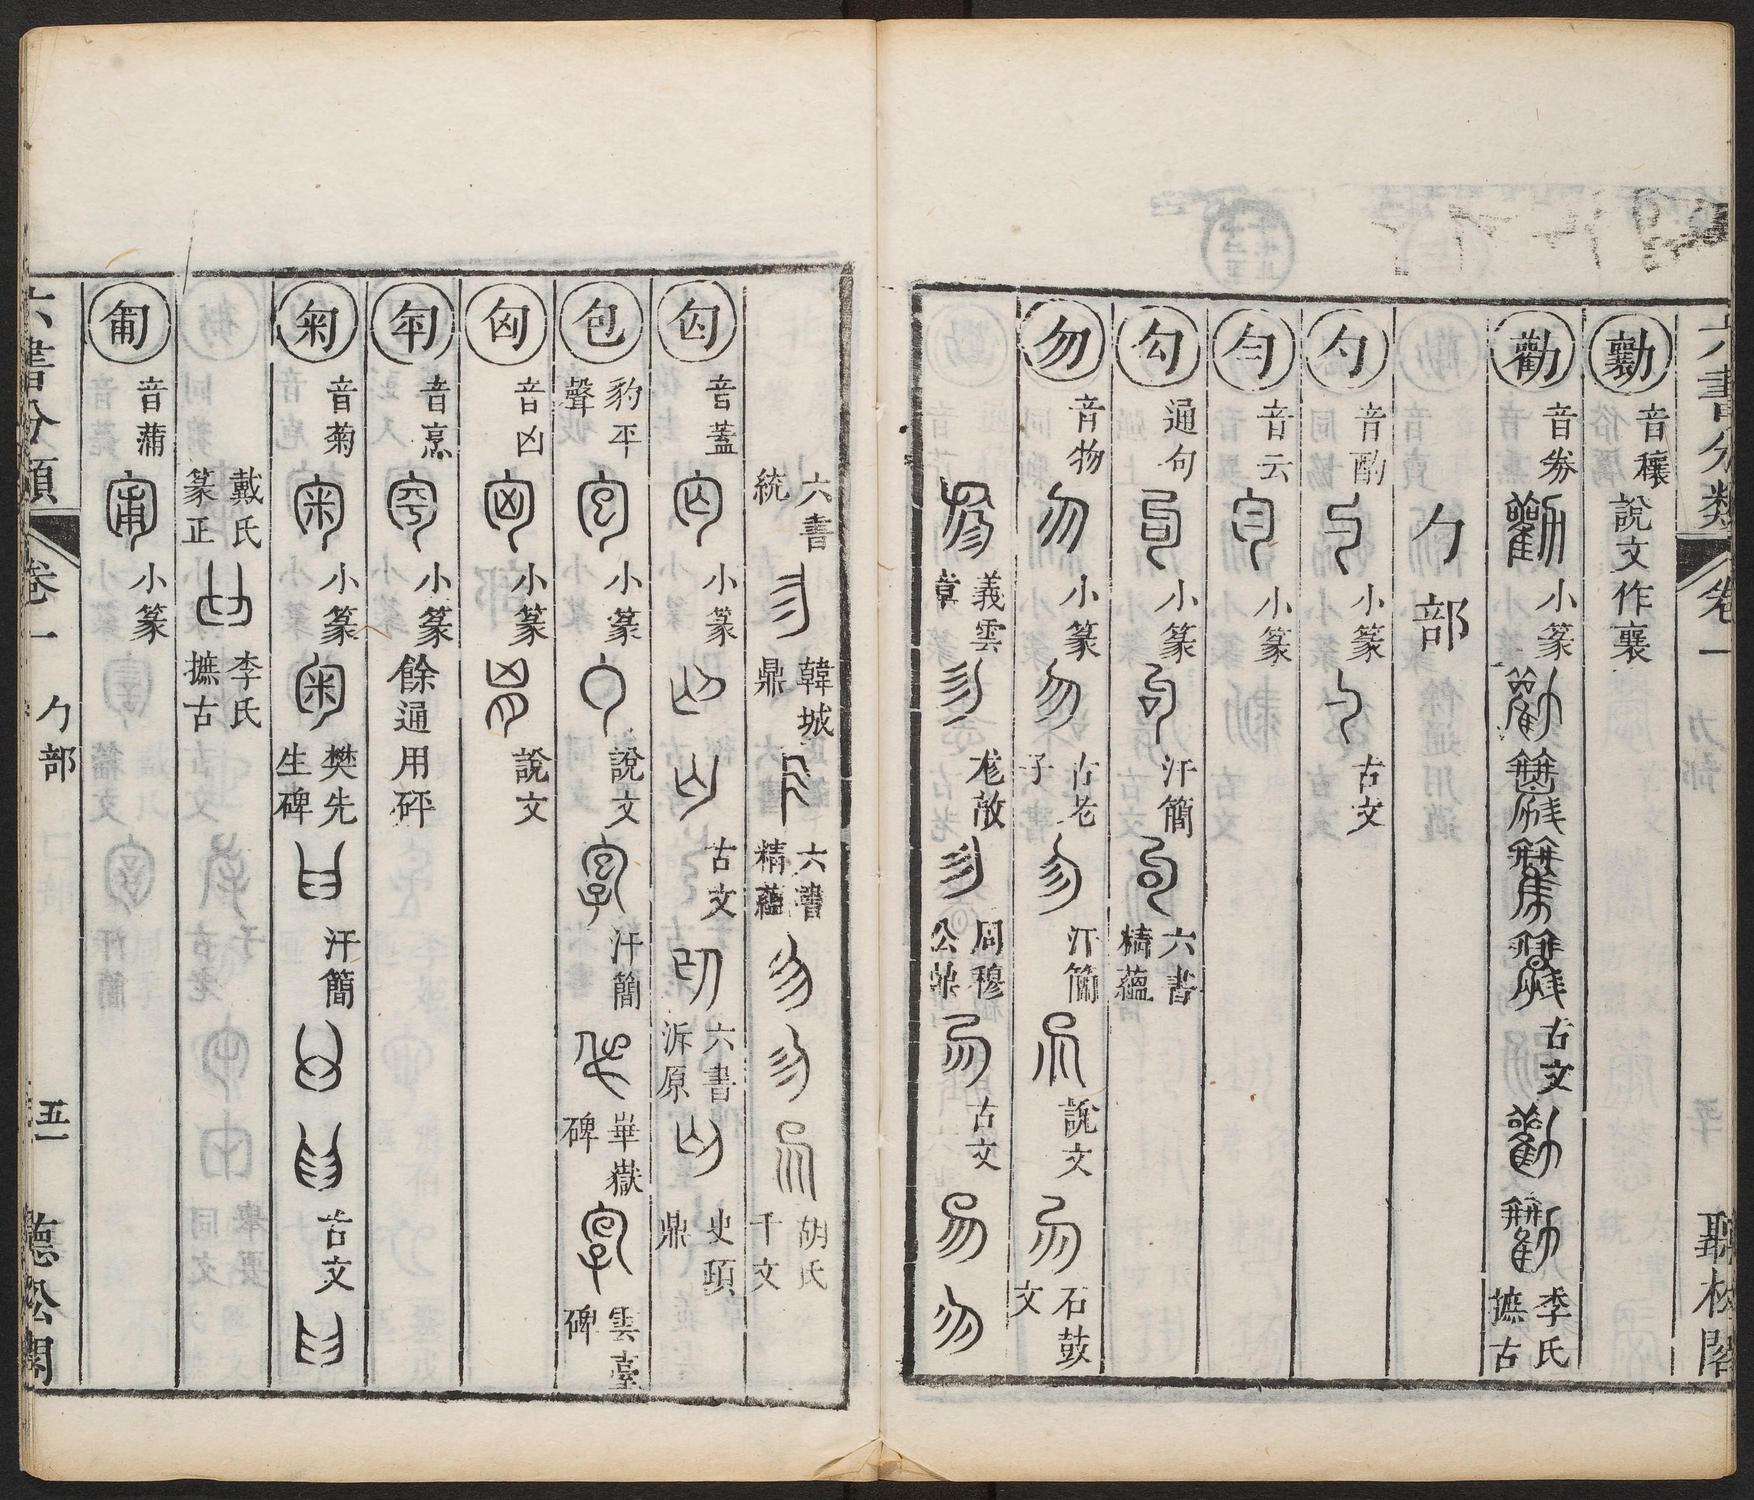 六書分類 卷一 聽松閣
勷 音穰 說文作襄
勸 音券 小篆 古文 李氏摭古
勹部
勺 音酌 小篆 古文
勻 音云 小篆
勾 通句 小篆 汗簡 六書精蘊
勿 音物 小篆 古老子 汗簡 說文 石鼓文
義雲章 尨敵 周穆公鼎 古文
六書統 韓城鼎 六書精蘊 胡氏千文
匃 音蓋 小篆 古文 六書泝原 史頙鼎
包 豹平聲 小篆 說文 汗簡 華嶽碑 雲臺碑
匈 音凶 小篆 說文
匉 音烹 小篆 餘通用砰
匊 音菊 小篆 樊先生碑 汗簡 古文
戴氏篆正 李氏摭古
匍 音蒲 小篆
六書分類 卷一 勹部 五一 聽松閣